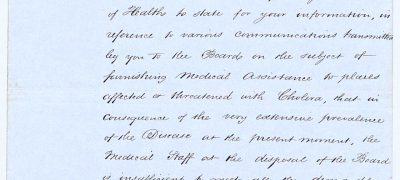 of Health to state for your information, in
reference to various communications transmitted
by you to the Board on the subject of
furnishing Medical Assistance to places
affected or threatened with Cholera, that in
consequence of the very extensive prevalence
of the Disease at the present moment, the
Medical Staff at the disposal of the Board
is insufficient to meet all the